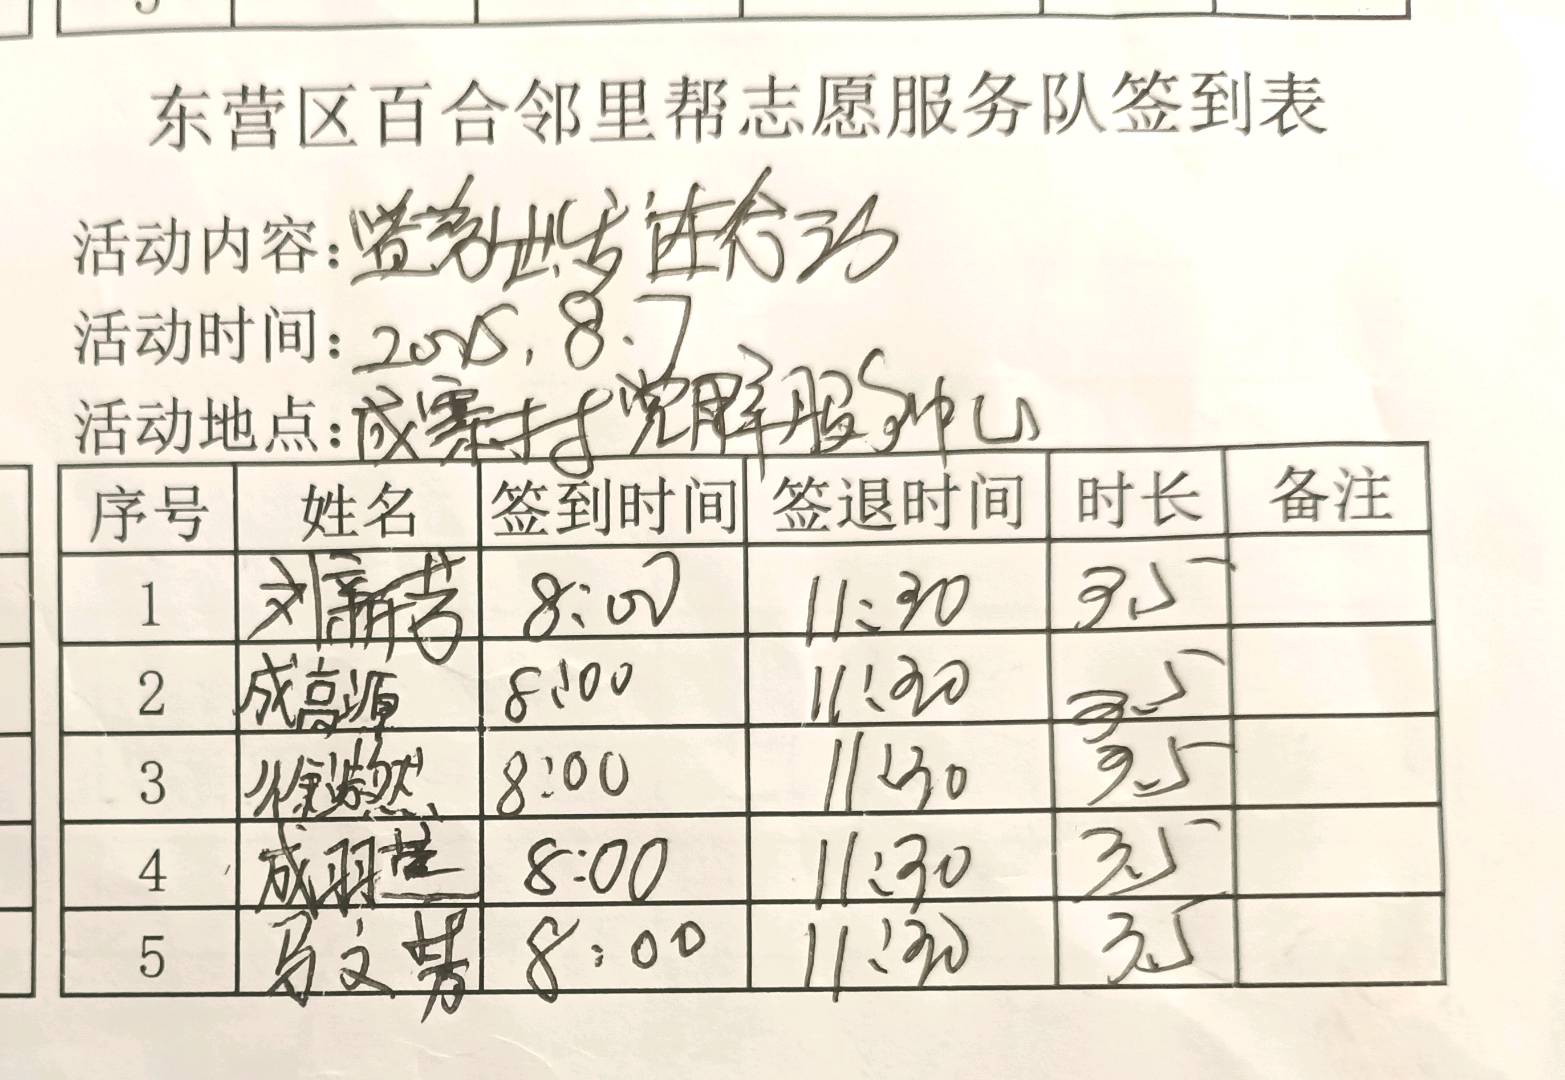 东营区百合邻里帮志愿服务队签到表
活动内容：
活动时间：2025.8.7
活动地点：成寨村党群服务中心
序号 姓名 签到时间 签退时间 时长 备注
1 刘新芳 8:00 11:30 3.5
2 成高源 8:00 11:30 3.5
3 徐 然 8:00 11:30 3.5
4 成羽 8:00 11:30 3.5
5 马文 8:00 11:30 3.5